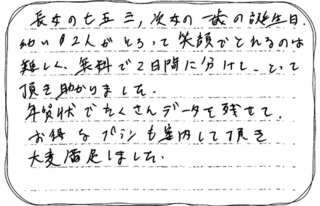 長女の七五三,次女の一歳の誕生日.
幼い子2人がそろって笑顔でとれるのは
難しく、無料で2日間に分けし、とって
頂き助かりました.
年賀状でたくさんデータを残せて.
お得なプランも案内して頂き
大変満足しました.